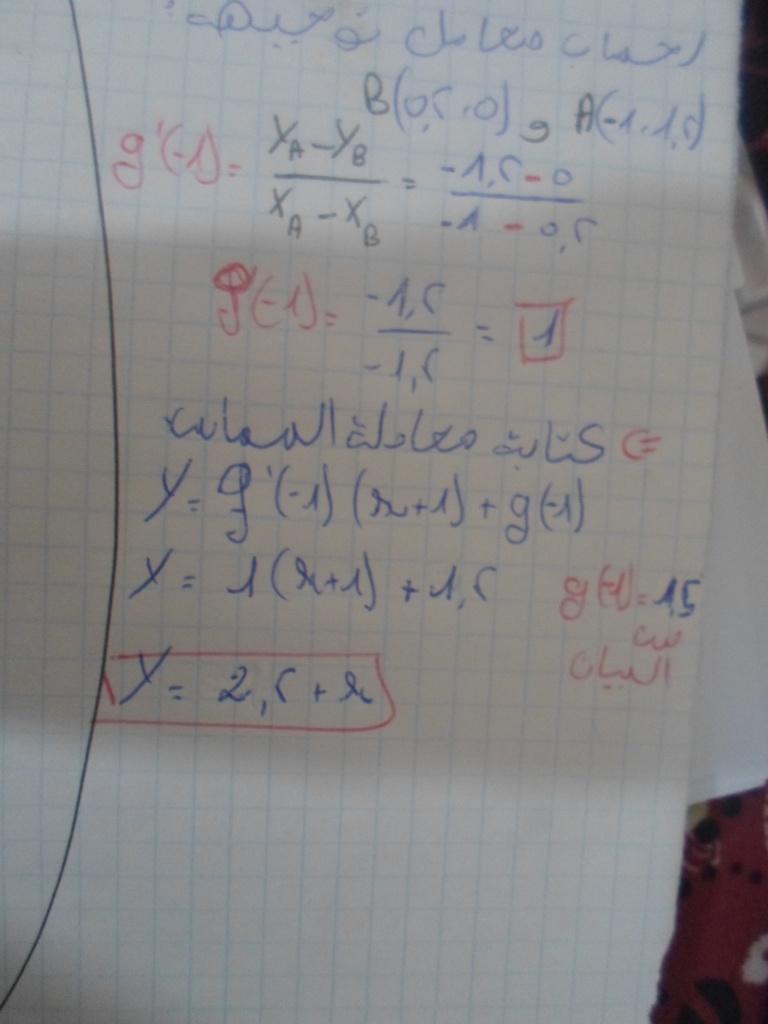 معامل توجيه:
B(0,5.0) و A(-1.1,5)
g'(-1) = (Y_A - Y_B) / (X_A - X_B) = (-1,5 - 0) / (-1 - 0,5)
g'(-1) = -1,5 / -1,5 = 1
⇐ كتابة معادلة المماس
Y = g'(-1) (x+1) + g(-1)
Y = 1(x+1) + 1,5 g(-1) = 1,5
من
البيان
Y = 2,5 + x